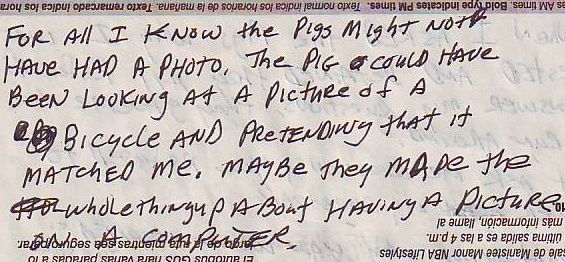 as AM times. Bold type indicates PM times. Texto normal indica los horarios de la mañana. Texto remarcado indica los hora
FOR All I KNOW the PIgs Might Not
HAVE HAD A PHOTO. The PIG COULD HAVE
BEEN LOOKING At A PIcture of A
BIcycle AND PRETENDING that it
MATCHED ME. MAYBE they MADE the
whole thing up ABOUT HAVING A PICTURE
A COMPUTER.
más información, llame al
última salida es a las 4 p.m.
sale de Manistee Manor Lifestyles
largo de la ruta mientras sea seguro parar.
El autobús GOS hará varias paradas a lo